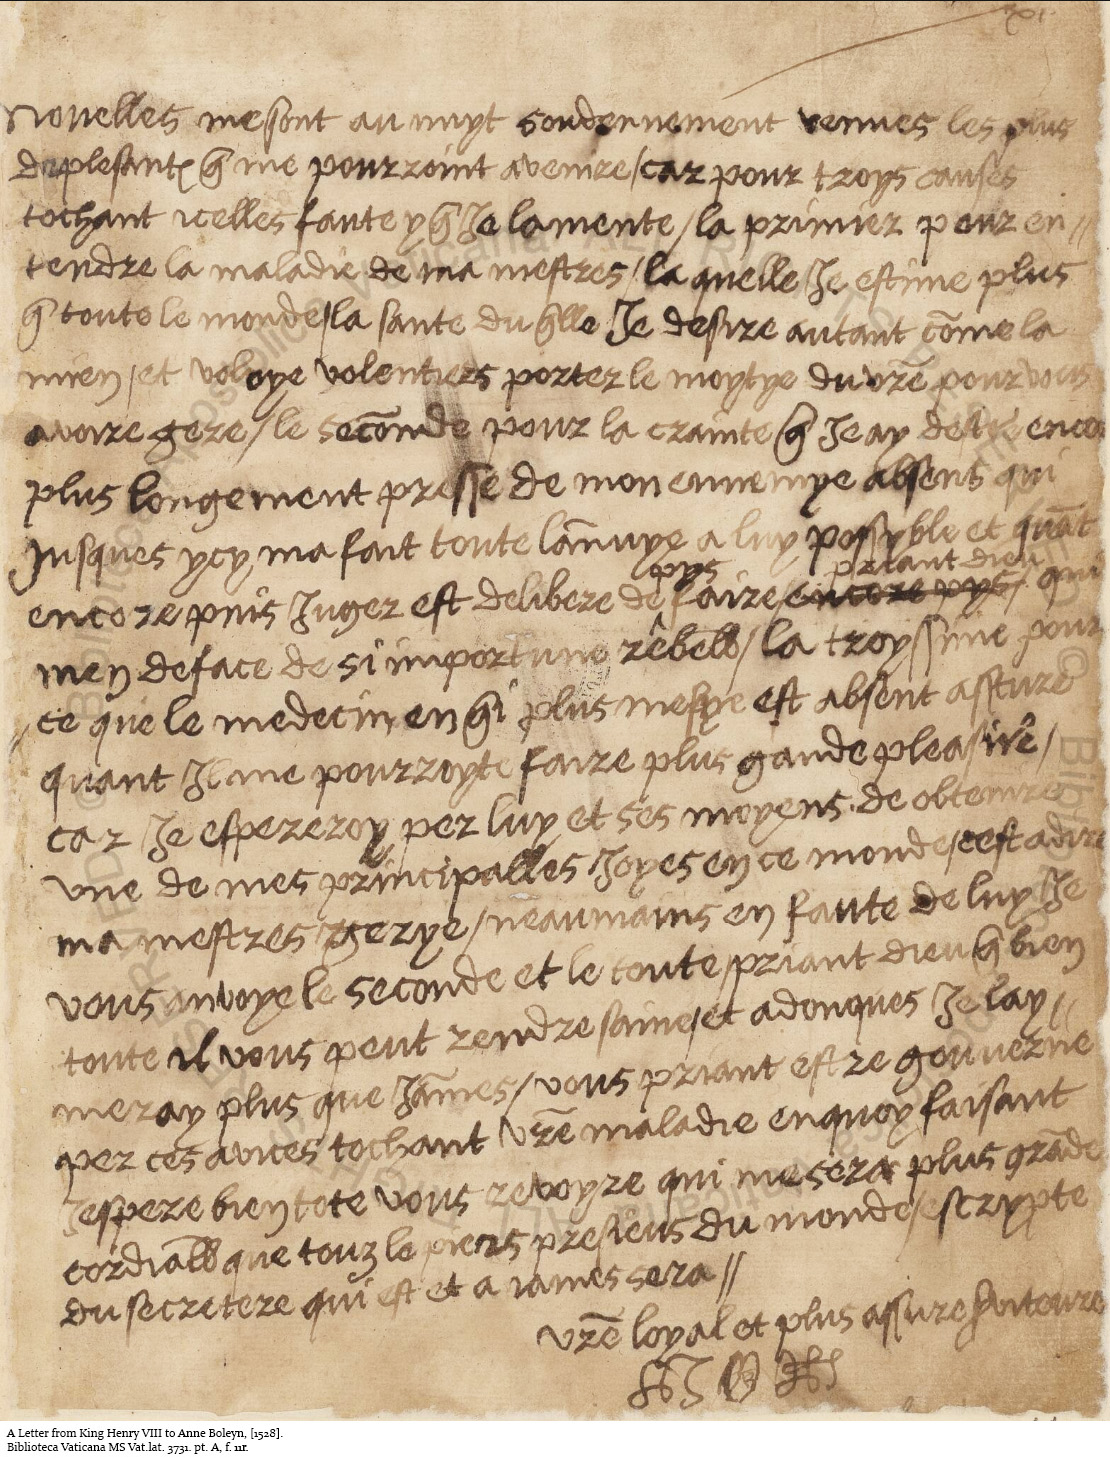 xi
Novelles me sont au nuyt soudennement venues les plus
deplesantes q̃ me pourroint avenire / car pour troys causes
tochant icelles faute y q̃ Je lamente / la primier pour en //
tendre la maladie de ma mestres / la quelle Je estime plus
q̃ toute le monde / la sante du q̃lle Je desire autant cõme la
mien / et voloye volentiers porter le moytye du vr̃e pour vous
avoire gere / le secõnde pour la crainte q̃ Je ay de etre encor
plus longement presse de mon ennemye absens qui
Jusques ycy ma fait toute lãnuye a luy possyble et quãt
pys priant dieu
encore puis Juger est delibere de faire / encore pys / qui
men deface de si importune rêbell / la troyssime pour
ce que le medecin en q̃i plus me fye est absent assture
quant Il me pourroyte faire plus gande pleasirê /
car Je espereroy per luy et ses moyens de obtenire
une de mes principalles Joyes en ce monde / cest a dire
ma mestres gerye / neaumains en faute de luy Je
vous anvoye le seconde et le toute / priant dieu q̃ bien
toute il vous peut rendre saine / et adonques Je lay //
meray plus que Jãmes / vous priant estre gouverne
per ces avices tochant vr̃e maladie en quoy faisant
Jespere bien tote vous revoyre qui me sera plus grãde
cordiall que touz le piers presieus du monde / escrypte
du secretere qui est et a james sera //
vr̃e loyal et plus assure serviteure
H J AB R
A Letter from King Henry VIII to Anne Boleyn, [1528].
Biblioteca Vaticana MS Vat.lat. 3731. pt. A, f. 11r.